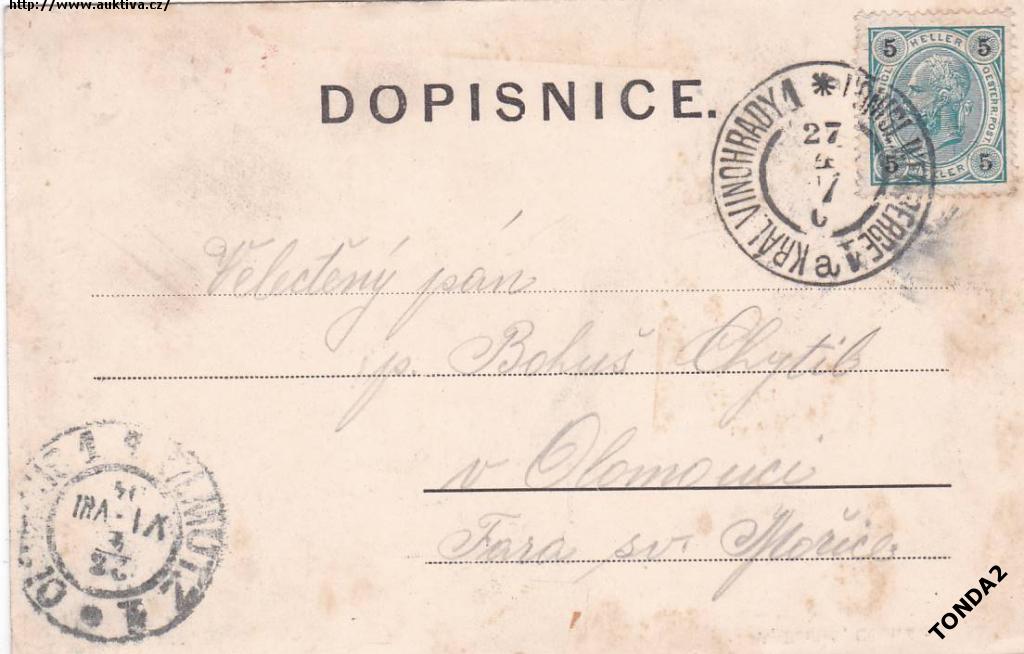 http://www.auktiva.cz/
DOPISNICE.
5 HELLER 5
OESTERR. POST
5 HELLER 5
KRÁL. VINOHRADY 1
27
4
a
Velectěný pán
p. Bohuš Chytil
v Olomouci
Fara sv. Mořice
OLMÜTZ 1
TONDA2